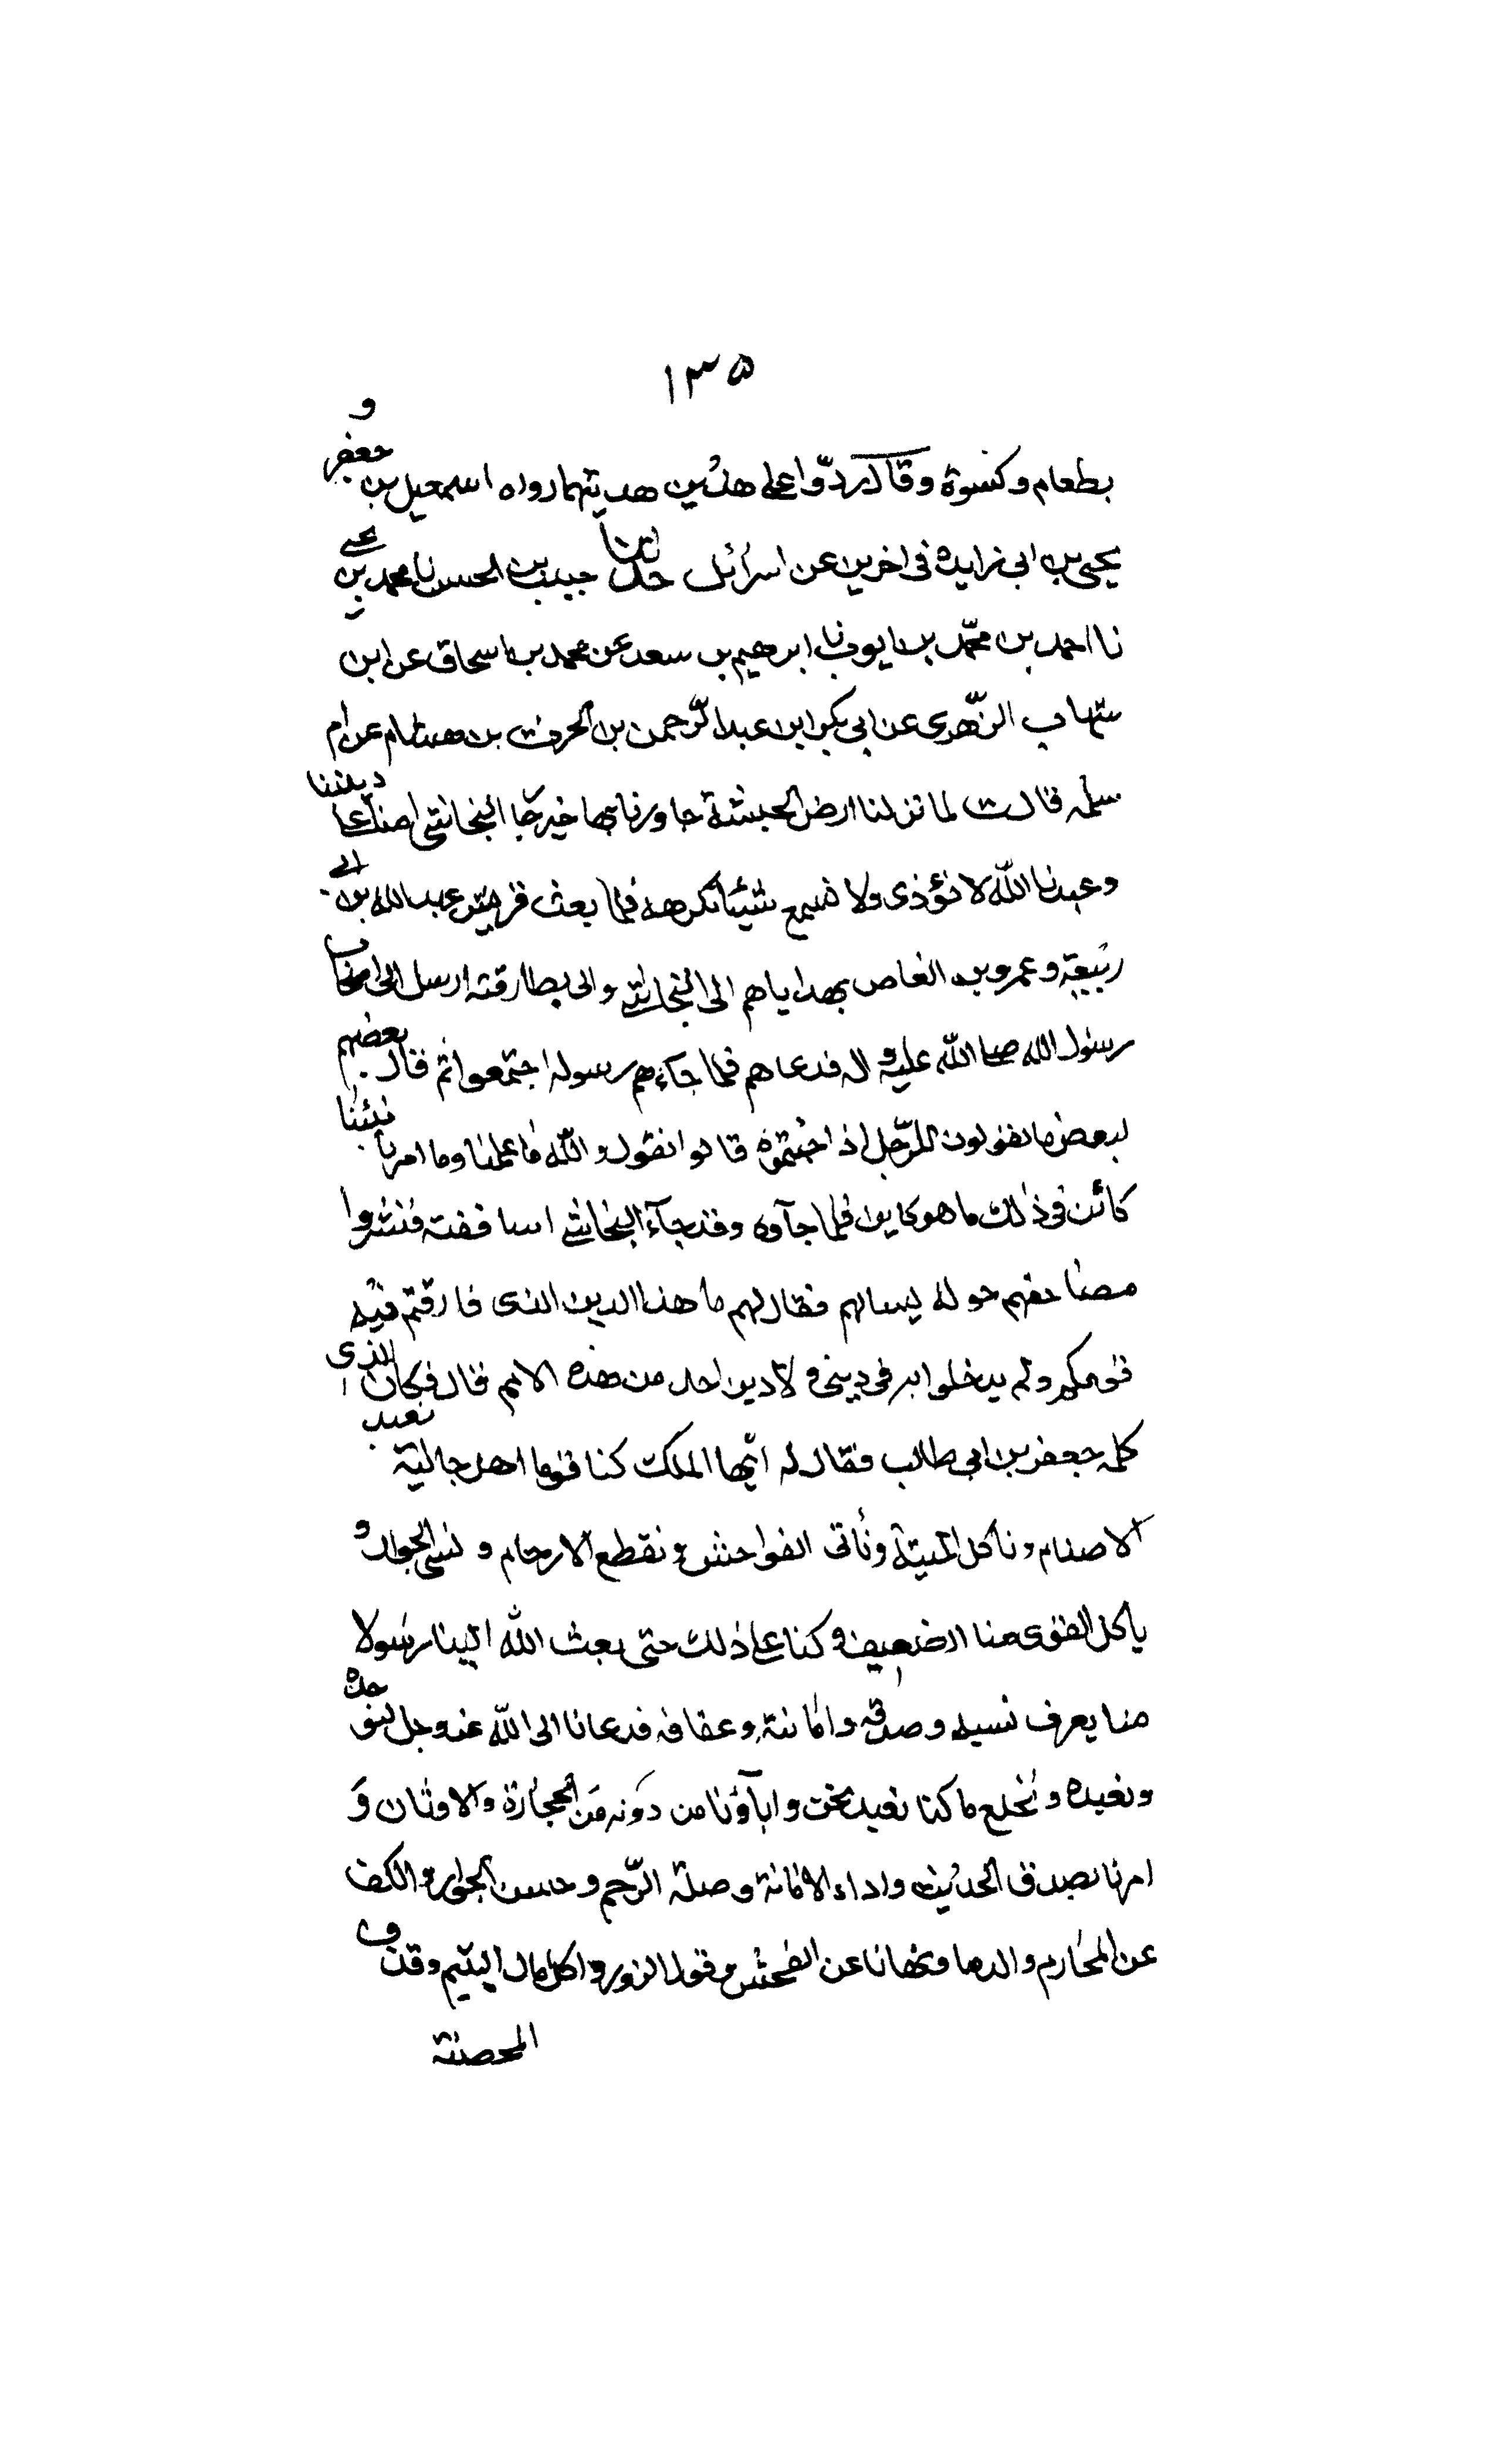 ١٣٥
بطعام وكسوة وقال ردّوا على هذين هديتهما رواه اسمعيل بن جعفر و
يحيى بن ابى زايده فى اخرين عن اسرائيل حدثنا حبيب بن الحسن نا محمد بن يحيى
نا احمد بن محمّد بن ايوب نا ابرهيم بن سعد عن محمد بن اسحاق عن ابن
شهاب الزّهرى عن ابى بكر ابن عبد الرّحمن بن الحرث بن هشام عن ام
سلمه قالت لما نزلنا ارض الحبشة جاورنا بها خير جار النجاشى امنا على ديننا
وعبدنا اللّه لا نؤذى ولا نسمع شيئا نكرهه فلما بعث قريش عبد الله بن ابى
ربيعة وعمرو بن العاص بهداياهم الى النجاشى والى بطارقته ارسل الى اصحاب
رسول الله صلى اللّه عليه و اله فدعاهم فلما جاءهم رسوله اجتمعوا ثم قال بعضهم
لبعض ما تقولون للرّجل اذا جئتموه قالوا نقول واللّه ما علمنا وما امرنا نبينا
كائن فى ذلك ما هو كاين فلما جآوه وقد جآء النجاشى اساقفته فنشروا
مصاحفهم حوله يسالهم فقال لهم ما هذا الدين الذى فارقتم فيه
قومكم ولم يدخلوا به فى دينى ولا دين احد من هذه الامم قال فكان الذى
كلمه جعفر بن ابى طالب فقال له ايّها الملك كنا قوما اهل جالية نعبد
الاصنام وناكل الميتة ونأتى الفواحش ونقطع الارحام و نسى الجوار و
ياكل القوى منا الضعيف وكنا على ذلك حتى بعث الله الينا رسولا
منا يعرف نسبه وصدقه وامانته وعفافه فدعانا الى اللّه عز وجل لنوحده
ونعبده ونخلع ما كنا نعبد نحن وابآؤنا من دونه من الحجارة والاوثان وَ
امرنا بصدق الحديث واداء الامانة وصلة الرّحم وحسن الجوار والكف
عن المحارم والدما ونهانا عن الفحش وقول الزور واكل مال اليتيم وقذف
المحصنة